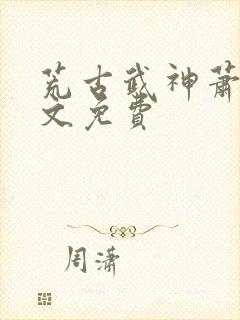 荒古武神萧
文免费
周潇